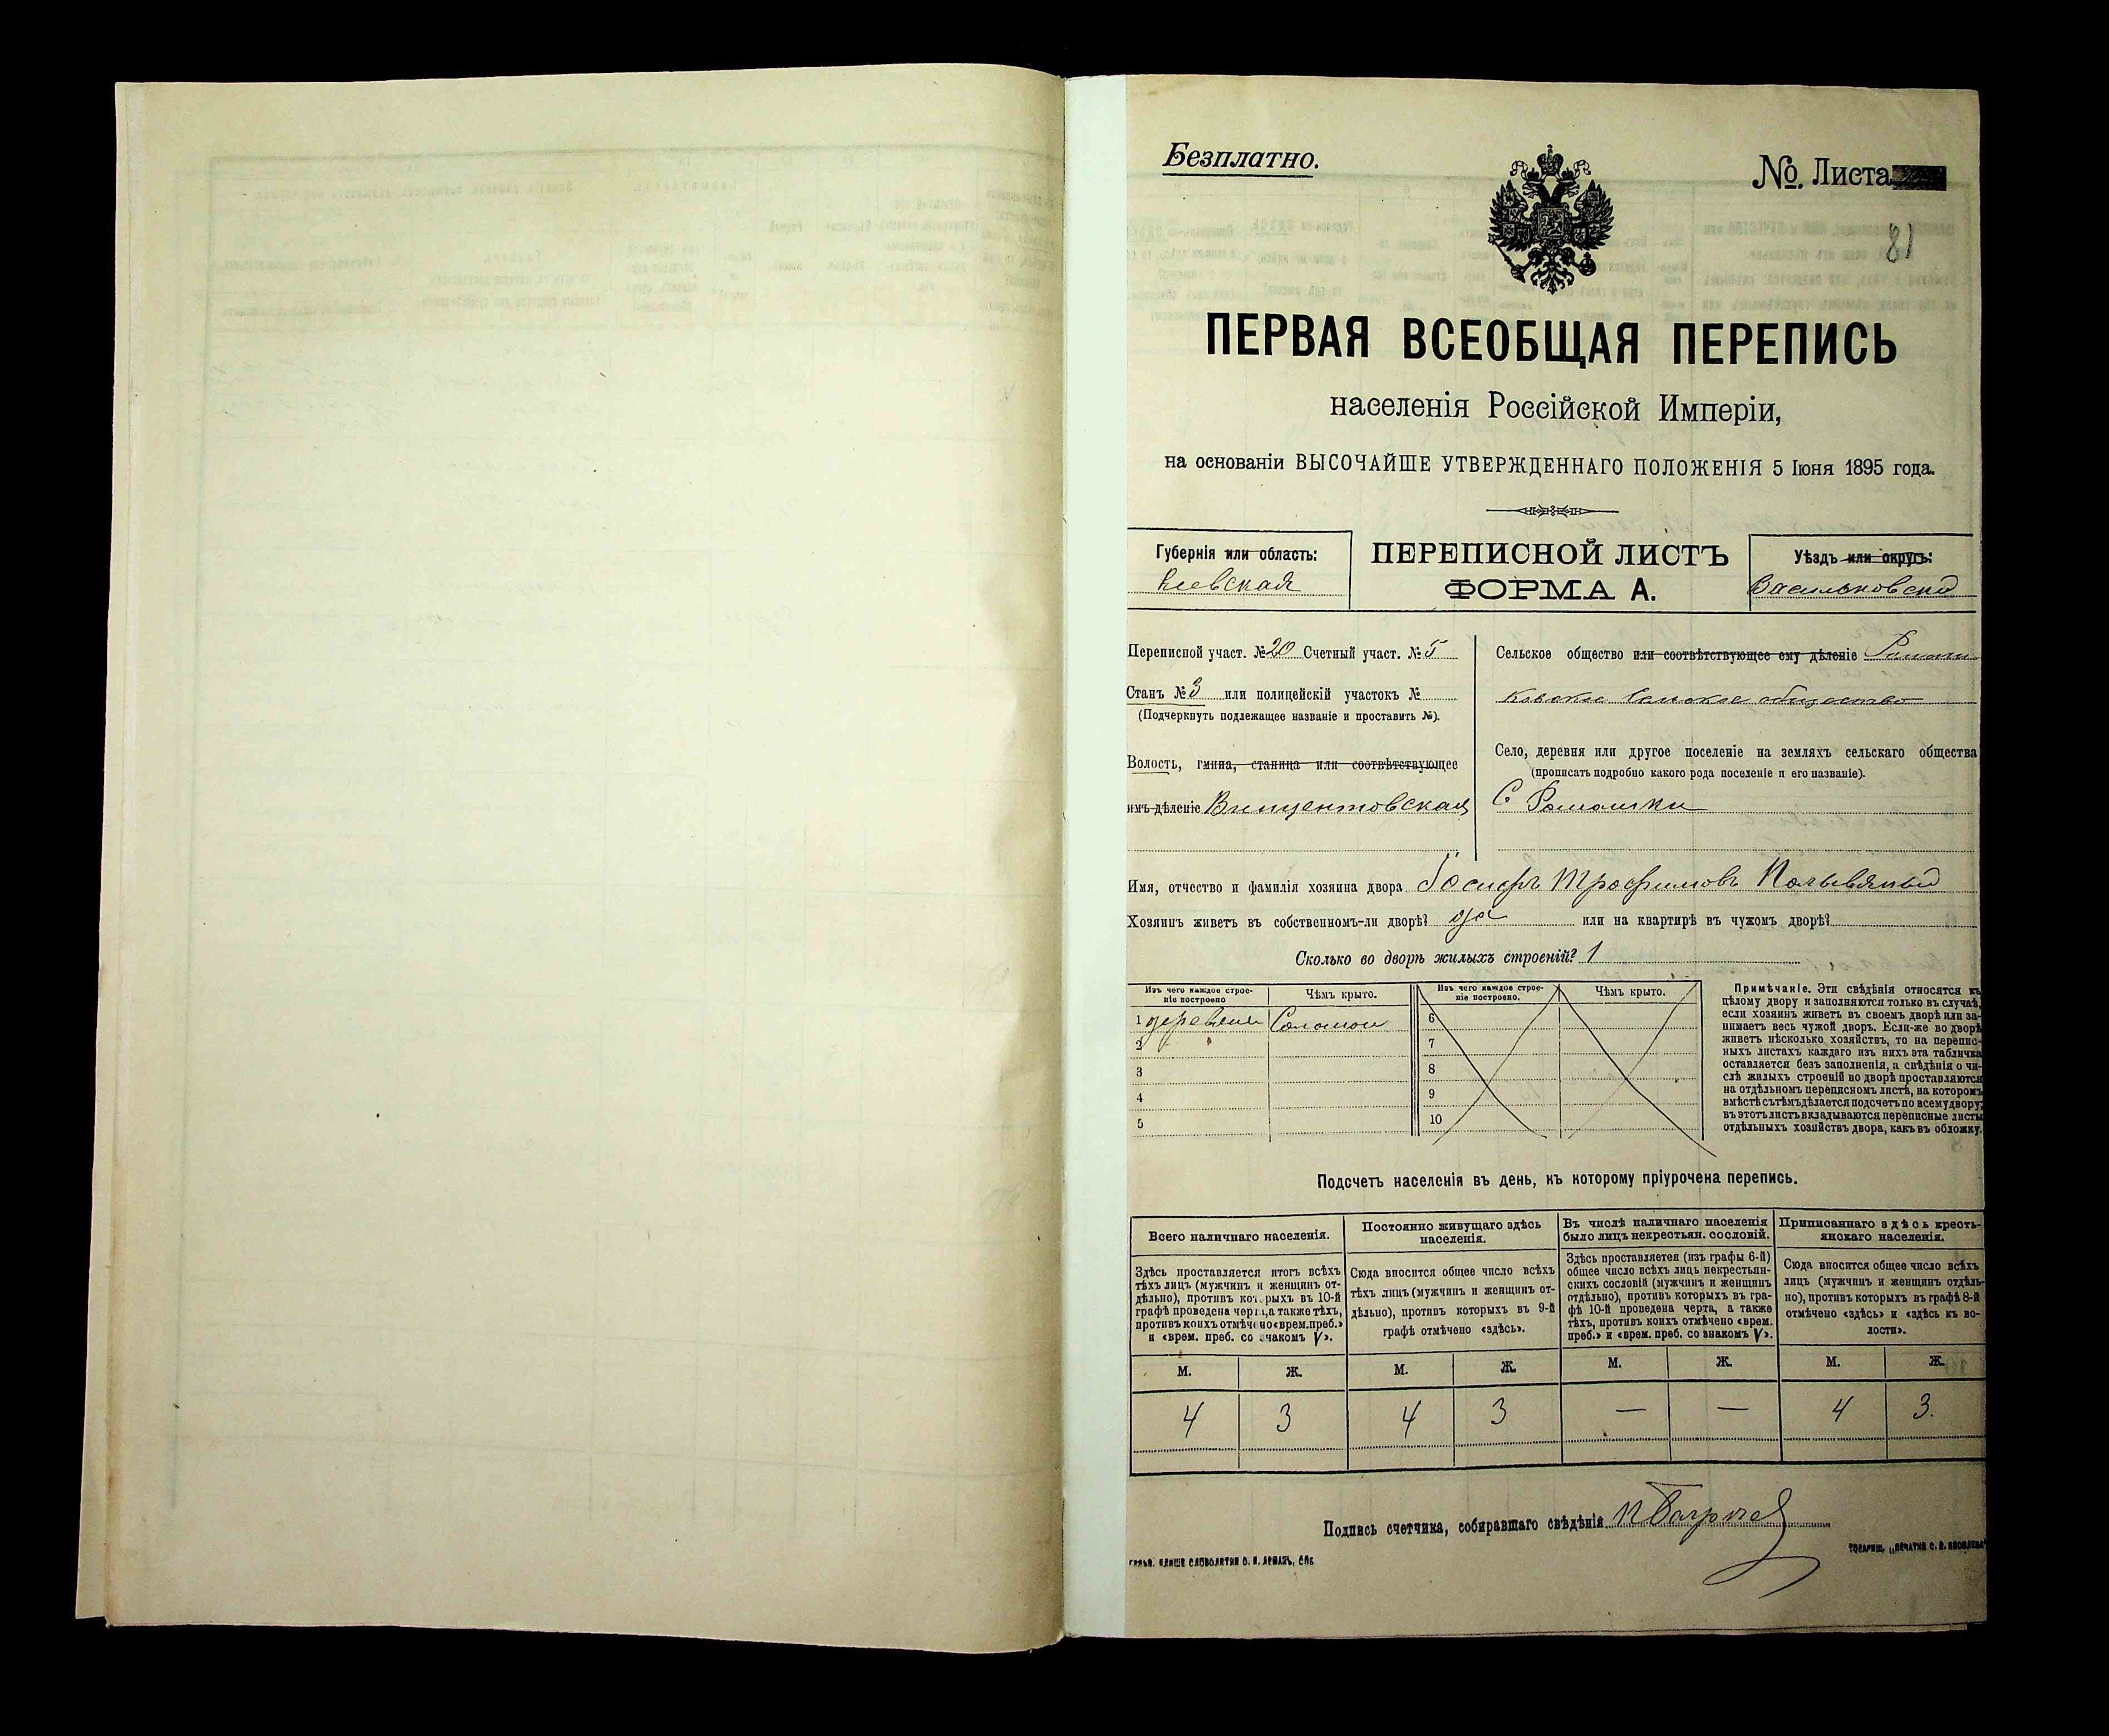 Безплатно.
№. Листа
81
ПЕРВАЯ ВСЕОБЩАЯ ПЕРЕПИСЬ
населенія Россійской Имперіи,
на основаніи ВЫСОЧАЙШЕ УТВЕРЖДЕННАГО ПОЛОЖЕНІЯ 5 Іюня 1895 года.
Губернія или область:
Кіевская
ПЕРЕПИСНОЙ ЛИСТЪ
ФОРМА А.
Уѣздъ или округъ:
Васильковскій
Переписной участ. № 20 Счетный участ. № 5
Станъ № 3 или полицейскій участокъ №
(Подчеркнуть подлежащее названіе и проставить №).
Волость, гмина, станица или соотвѣтствующее
имъ дѣленіе Винцентовская
Сельское общество или соотвѣтствующее ему дѣленіе Ромаш
ковское сельское общество
Село, деревня или другое поселеніе на земляхъ сельскаго общества
(прописать подробно какого рода поселеніе и его названіе).
С Ромашки
Имя, отчество и фамилія хозяина двора Іосифъ Трофимовъ
Хозяинъ живетъ въ собственномъ-ли дворѣ? да или на квартирѣ въ чужомъ дворѣ?
Сколько во дворѣ жилыхъ строеній? 1
Изъ чего каждое строе-
ніе построено
Чѣмъ крыто.
Изъ чего каждое строе-
ніе построено.
Чѣмъ крыто.
1 Соломою
2
3
4
5
6
7
8
9
10
Примѣчаніе. Эти свѣдѣнія относятся къ
цѣлому двору и заполняются только въ случаѣ,
если хозяинъ живетъ въ своемъ дворѣ или за-
нимаетъ весь чужой дворъ. Если-же во дворѣ
живетъ нѣсколько хозяйствъ, то на перепис-
ныхъ листахъ каждаго изъ нихъ эта табличка
оставляется безъ заполненія, а свѣдѣнія о чи-
слѣ жилыхъ строеній во дворѣ проставляются
на отдѣльномъ переписномъ листѣ, на которомъ
вмѣстѣ съ тѣмъ дѣлается подсчетъ по всему двору;
въ этотъ листъ вкладываются переписные листы
отдѣльныхъ хозяйствъ двора, какъ въ обложку.
Подсчетъ населенія въ день, къ которому пріурочена перепись.
Всего наличнаго населенія.
Здѣсь проставляется итогъ всѣхъ
тѣхъ лицъ (мужчинъ и женщинъ от-
дѣльно), противъ которыхъ въ 10-й
графѣ проведена черта, а также тѣхъ,
противъ коихъ отмѣчено «врем. преб.»
и «врем. преб. со знакомъ V».
Постоянно живущаго здѣсь
населенія.
Сюда вносится общее число всѣхъ
тѣхъ лицъ (мужчинъ и женщинъ от-
дѣльно), противъ которыхъ въ 9-й
графѣ отмѣчено «здѣсь».
Въ числѣ наличнаго населенія
было лицъ некрестьян. сословій.
Здѣсь проставляется (изъ графы 6-й)
общее число всѣхъ лицъ некрестьян-
скихъ сословій (мужчинъ и женщинъ
отдѣльно), противъ которыхъ въ гра-
фѣ 10-й проведена черта, а также
тѣхъ, противъ коихъ отмѣчено «врем.
преб.» и «врем. преб. со знакомъ V».
Приписаннаго здѣсь кресть-
янскаго населенія.
Сюда вносится общее число всѣхъ
лицъ (мужчинъ и женщинъ отдѣль-
но), противъ которыхъ въ графѣ 8-й
отмѣчено «здѣсь» и «здѣсь къ во-
лости».
М. Ж. М. Ж. М. Ж. М. Ж.
4 3 4 3 — — 4 3.
Подпись счетчика, собиравшаго свѣдѣнія